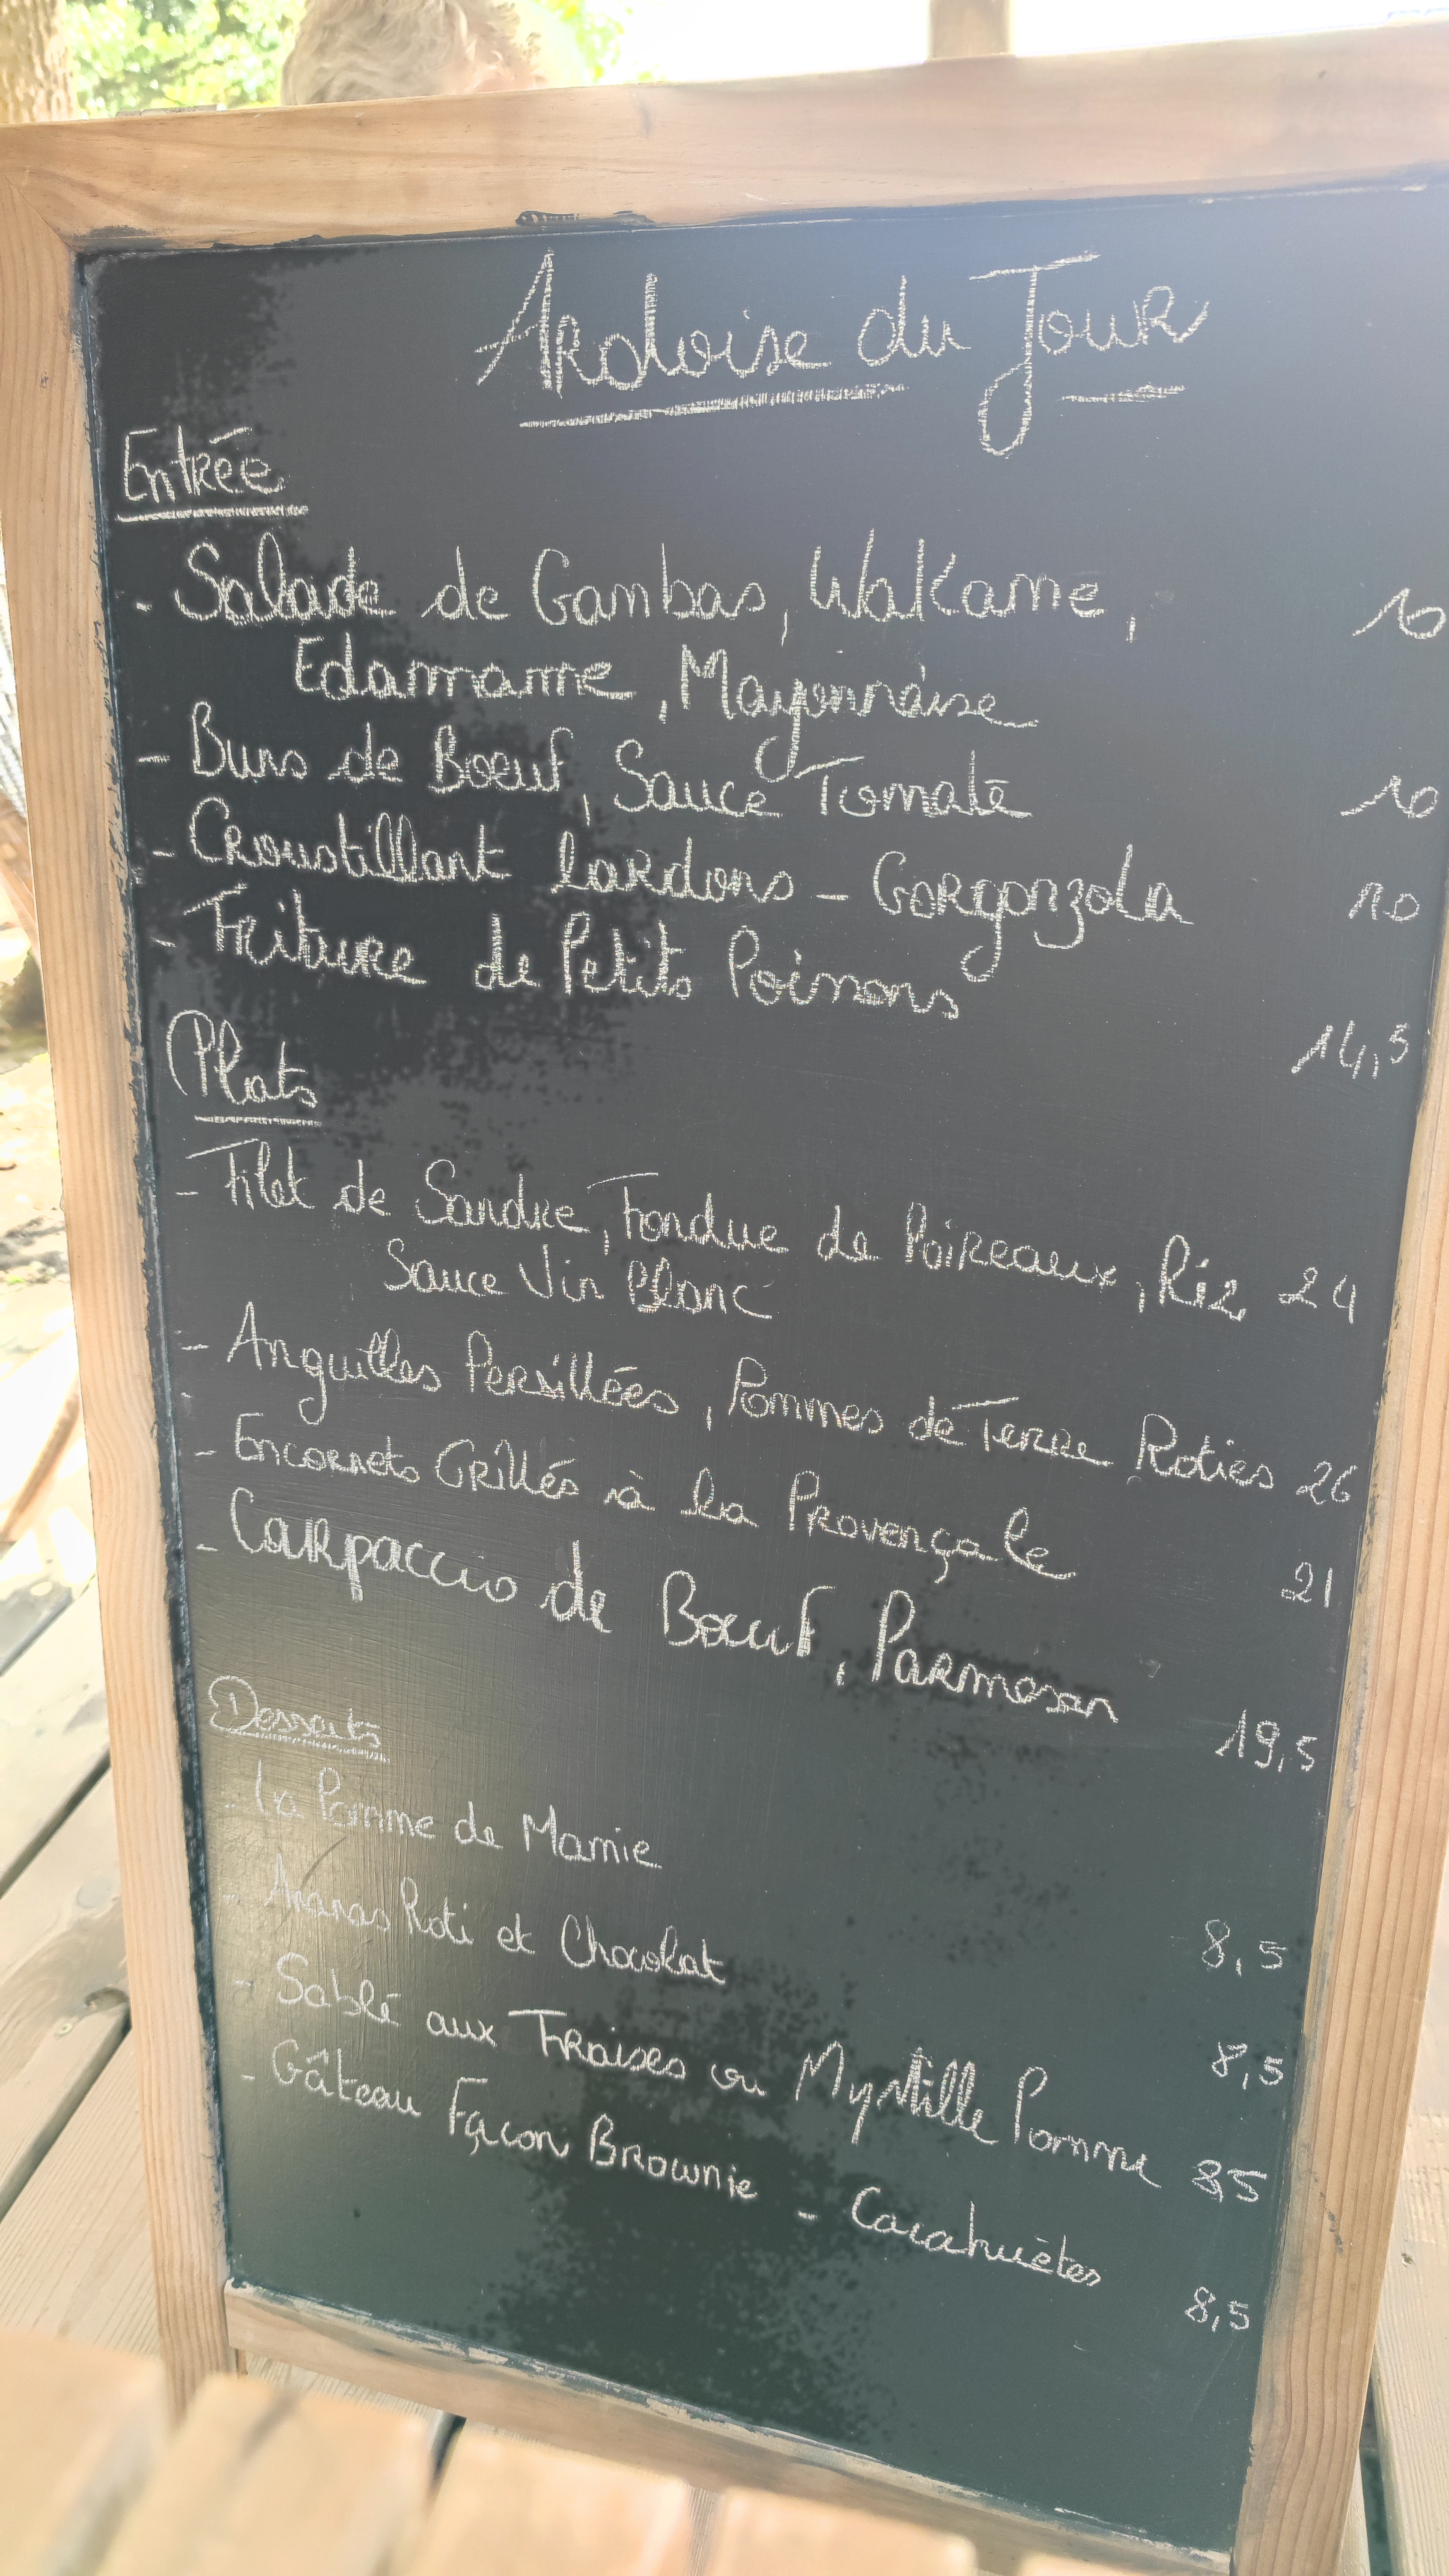 Ardoise du Jour
Entrée
- Salade de Gambas, Wakame, 10
Edamame, Mayonnaise
- Buns de Boeuf, Sauce Tomate 10
- Croustillant lardons - Gorgonzola 10
- Friture de Petits Poissons 14,5
Plats
- Filet de Sandre, Fondue de Poireaux, Riz 24
Sauce Vin Blanc
- Anguilles Persillées, Pommes de Terre Roties 26
- Encornets Grillés à la Provençale 21
- Carpaccio de Boeuf, Parmesan 19,5
Desserts
- La Pomme de Mamie 8,5
- Ananas Roti et Chocolat 8,5
- Sablé aux Fraises ou Myrtille Pomme 8,5
- Gâteau Façon Brownie - Cacahuètes 8,5